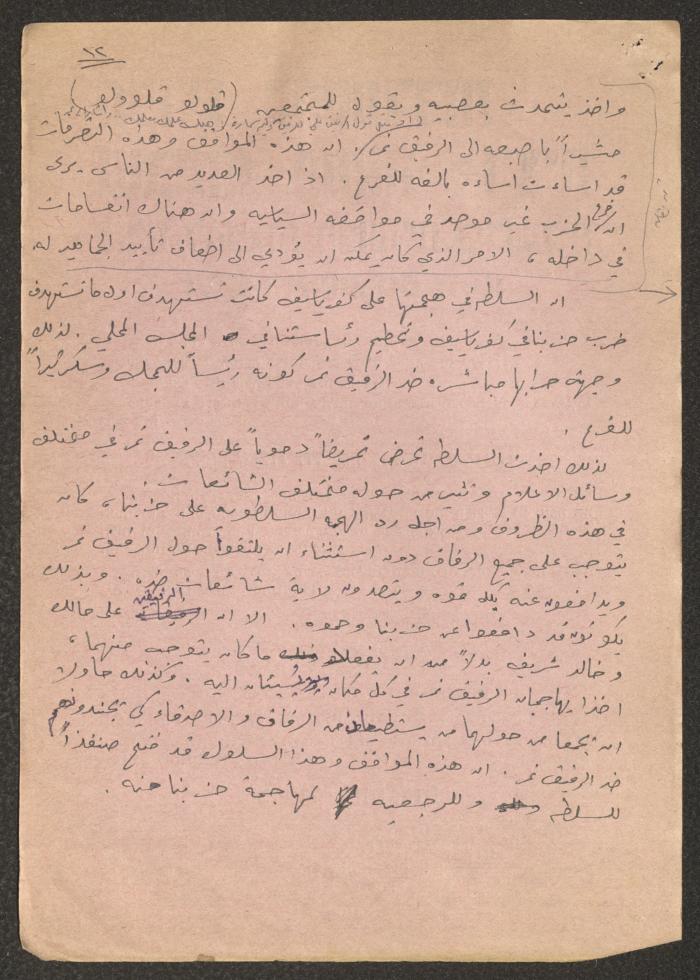 ١٢
واخذ يتحدث بعصبيه ويقول للمجتمعين (قلولو قلوولو)
مشيراً باصبعه الى الرفيق نمر. ان هذه المواقف وهذه التصرفات
قد اساءت اساءه بالغه للفرع. اذ اخذ العديد من الناس يرى
ان الحزب غير موحد في مواقفه السياسيه وان هناك انقسامات
في داخله، الامر الذي كان يمكن ان يؤدي الى اضعاف تأييد الجماهير له.
ان السلطه في هجمتها على كفرياسيف كانت تستهدف اول ما تستهدف
ضرب حزبنا في كفرياسيف وتحطيم رئاستنا في المجلس المحلي. لذلك
وجهت حرابها مباشره ضد الرفيق نمر كونه رئيساً للمجلس وسكرتيراً
للفرع.
لذلك اخذت السلطه تحرض تحريضاً دموياً على الرفيق نمر في مختلف
وسائل الاعلام وتثير من حوله مختلف الشائعات.
في هذه الظروف ومن اجل رد الهجمه السلطويه على حزبنا، كان
يتوجب على جميع الرفاق دون استثناء ان يلتفوا حول الرفيق نمر
ويدافعون عنه بكل قوه ويتصدون لاية شائعات ضده. وبذلك
يكونون قد دافعوا عن حزبنا وحموه. الا ان الرفيقين على مالك
وخالد شريف بدلاً من ان يفعلا ما كان يتوجب منهما،
اخذا يهاجمان الرفيق نمر في كل مكان ويسيئان اليه. وكذلك حاولا
ان يجمعا من حولهما من يستطيعان من الرفاق والاصدقاء كي يجندونهم
ضد الرفيق نمر. ان هذه المواقف وهذا السلوك قد فتح منفذاً
للسلطه وللرجعيه لمهاجمة حزبنا منه.